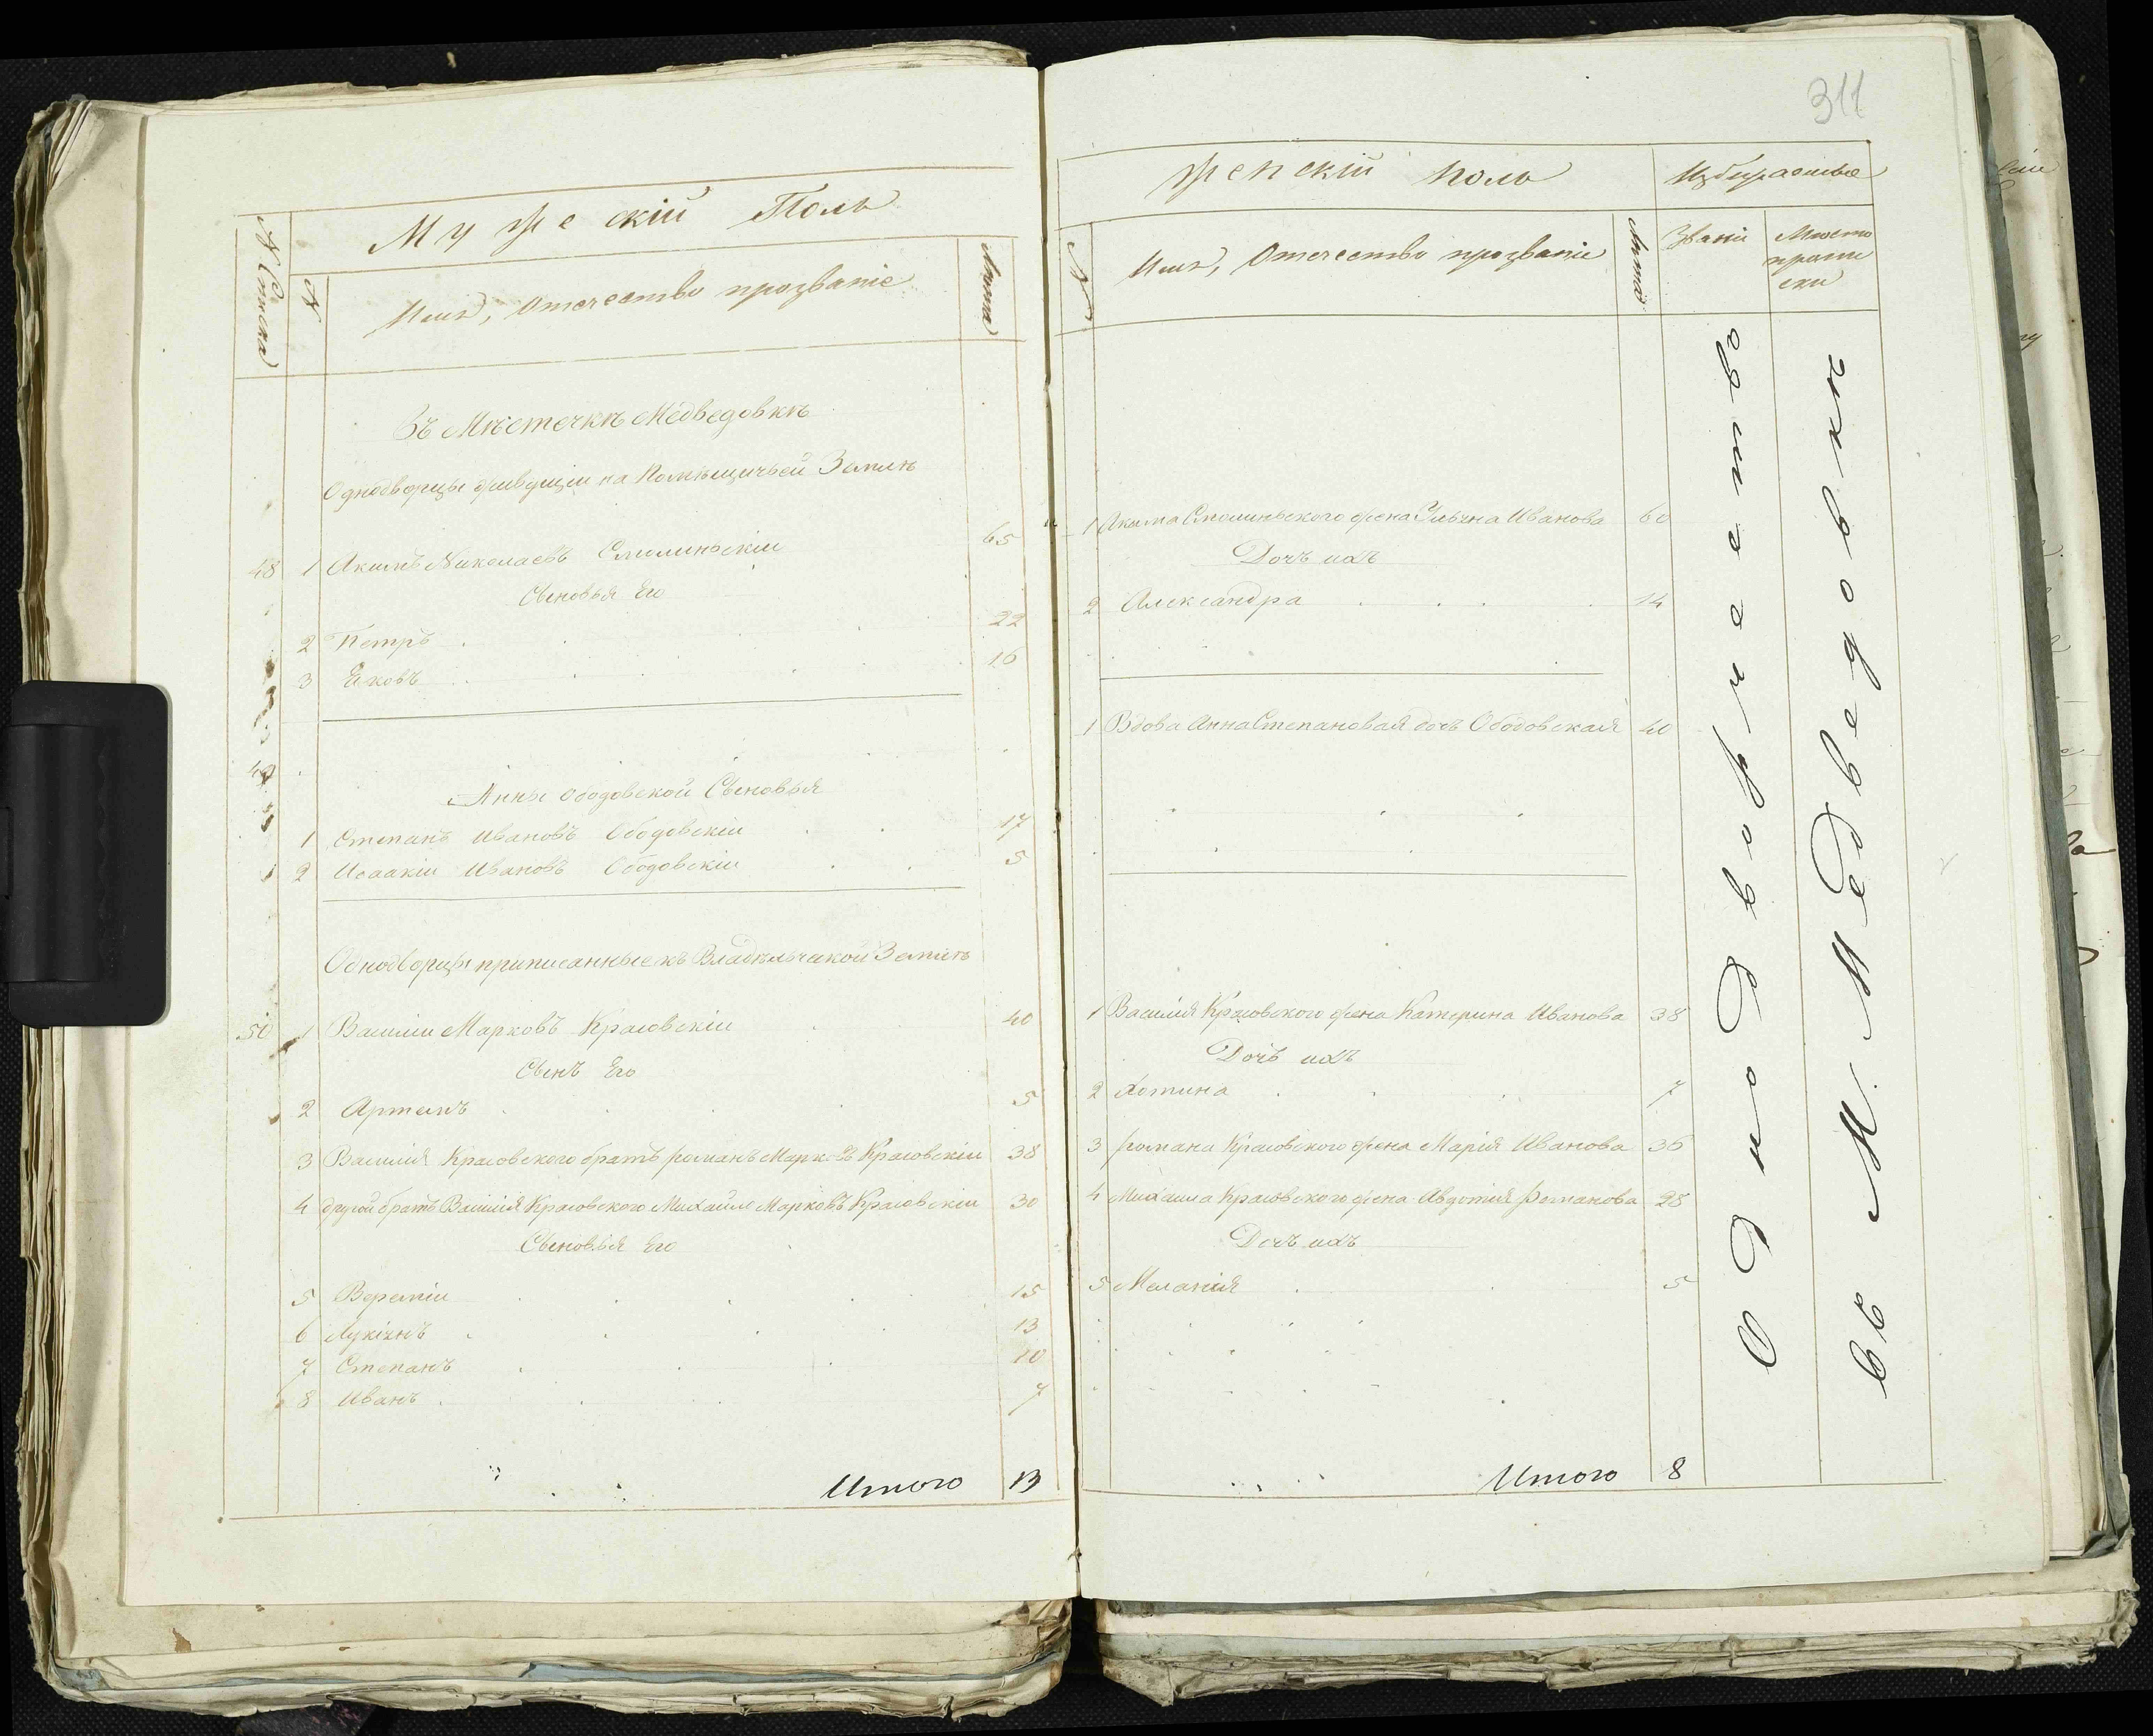 311
Мужескій Полъ
N Семей
N
Имя, Отечество прозваніе
Лѣта
Въ Мѣстечкѣ Медведовкѣ
Однодворцы живущіи на Помѣщичьей Землѣ
48 1 Акимъ Николаевъ Смолинскіи 65
Сыновья Его
2 Петръ 22
3 Яковъ 16
49
Анны Ободовской Сыновья
1 Степанъ Ивановъ Ободовскіи 17
2 Исаакіи Ивановъ Ободовскіи 5
Однодворцы приписанные къ Владѣльческой Землѣ
50 1 Василіи Марковъ Красовскіи 40
Сынъ Его
2 Артемъ 5
3 Василія Красовского братъ романъ Марковъ Красовскіи 38
4 другой братъ Василія Красовского Михайло Марковъ Красовскіи 30
Сыновья Его
5 Вереміи 15
6 Лукіянъ 13
7 Степанъ 10
8 Иванъ 7
Итого 13
Женскій полъ
Избираемые
N
Имя, Отечество прозваніе
Лѣта
Званіи
Место
припи
ски
1 Акима Смолинского жена Ивановa 60
Дочъ ихъ
2 Александра 14
1 Вдова Анна Степановая дочъ Ободовская 40
1 Василія Красовского жена Катерина Иванова 38
Дочъ ихъ
2 7
3 романа Красовского жена Марія Иванова 36
4 Михаила Красовского жена Авдотия романова 28
Дочъ ихъ
5 Меланія 5
Итого 8
Однодворчество
въ М. Медведовкѣ